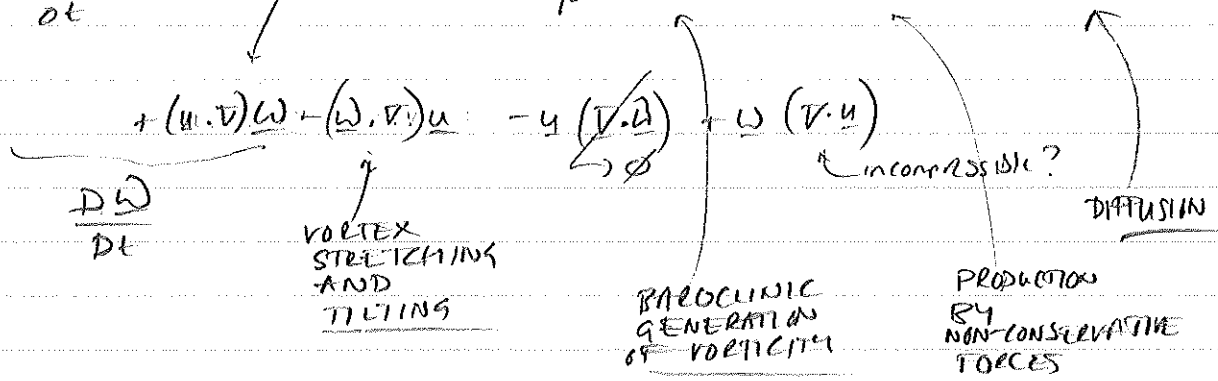 ∂t
+ (u.∇)ω - (ω.∇)u - u (∇.ω) + ω (∇.u)
→ ∅
incompressible?
Dω
Dt
VORTEX
STRETCHING
AND
TILTING
BAROCLINIC
GENERATION
OF VORTICITY
PRODUCTION
BY
NON-CONSERVATIVE
FORCES
DIFFUSION